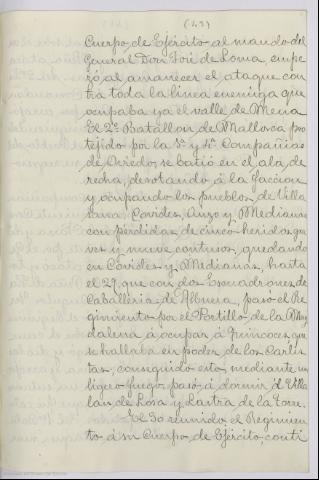 (43)
Cuerpo de Ejército al mando del
General Don José de Loma, empe
zó al amanecer el ataque con
tra toda la linea enemiga que
ocupaba ya el valle de Mena
El 2º Batallon de Mallorca pro
tejido por la 3ª y 4ª Compañias
de Oviedo, se batió en el ala de
recha, derrotando á la faccion
y ocupando los pueblos de Villa
sana, Covides, Anzo y Medianas
con pérdidas de cinco heridos gra
ves y nueve contusos, quedando
en Covides y Medianas, hasta
el 29, que con dos Escuadrones de
Caballeria de Albuera, pasó el Re
gimiento por el Portillo de la Mag
dalena á ocupar á Quincoces, que
se hallaba en poder de los Carlis
tas, conseguido esto, mediante un
ligero fuego, pasó á dormir á Villa
lan de Losa y Lastra de la Torre.
El 30 reunido el Regimien
to á su Cuerpo de Ejército, conti